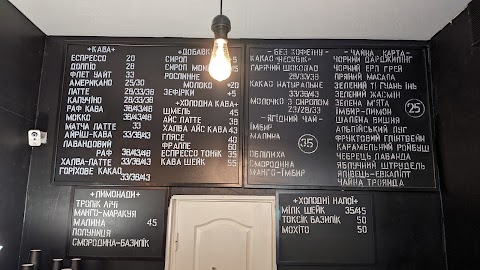 -КАВА-
ЕСПРЕССО 20
ДОППІО 28
ФЛЕТ УАЙТ 33
АМЕРИКАНО 25/30
ЛАТТЕ 28/33/38
КАПУЧІНО 28/33/38
РАФ КАВА 38/43/48
МОККО 38/43/48
МАТЧА ЛАТТЕ 33
АЙРІШ-КАВА 33/38/43
ЛАВАНДОВИЙ
РАФ 38/43/48
ХАЛВА-ЛАТТЕ 33/38/43
ГОРІХОВЕ КАКАО
33/38/43
ДОБАВК
СИРОП +5
СИРОП MON
РОСЛИННЕ
МОЛОКО +20
ЗЕФІРКИ +5
-ХОЛОДНА КАВА-
ШМЕЛЬ 45
АЙС ЛАТТЕ 38
ХАЛВА АЙС КАВА 43
ГЛЯСЕ 40
ФРАППЕ 50
ЕСПРЕССО ТОНІК 35
КАВА ШЕЙК 55
-БЕЗ КОФЕЇНУ-
КАКАО "НЕСКВІК"
ГАРЯЧИЙ ШОКОЛАД
28/33/38
КАКАО НАТУРАЛЬНЕ
33/38/43
МОЛОЧКО З СИРОПОМ
23/28/33
-ЯГІДНИЙ ЧАЙ-
ІМБИР
МАЛИНА
35
ОБЛІПИХА
СМОРОДИНА
МАНГО-ІМБИР
-ЧАЙНА КАРТА-
ЧОРНИЙ ДАРДЖИЛІНГ
ЧОРНИЙ ЕРЛ ГРЕЙ
ПРЯНИЙ МАСАЛА
ЗЕЛЕНИЙ ТІ ГУАНЬ ІНЬ
ЗЕЛЕНИЙ ЖАСМІН
ЗЕЛЕНА М'ЯТА
ІМБИР-ЛИМОН
25
ШАЛЕНА ВИШНЯ
АЛЬПІЙСЬКИЙ ЛУГ
ФРУКТОВИЙ ГЛІНТВЕЙН
КАРАМЕЛЬНИЙ РОЙБУШ
ЧЕБРЕЦЬ ЛАВАНДА
ЯБЛУЧНИЙ ШТРУДЕЛЬ
ЯЛІВЕЦЬ-ЕВКАЛІПТ
ЧАЙНА ТРОЯНДА
-ЛИМОНАДИ-
ТРОПІК
МАНГО-МАРАКУЯ
МАЛИНА 45
ПОЛУНИЦЯ
СМОРОДИНА-БАЗИЛІК
-ХОЛОДНІ НАПОЇ-
МІЛК ШЕЙК 35/45
ТОКСІК БАЗИЛІК 50
МОХІТО 50